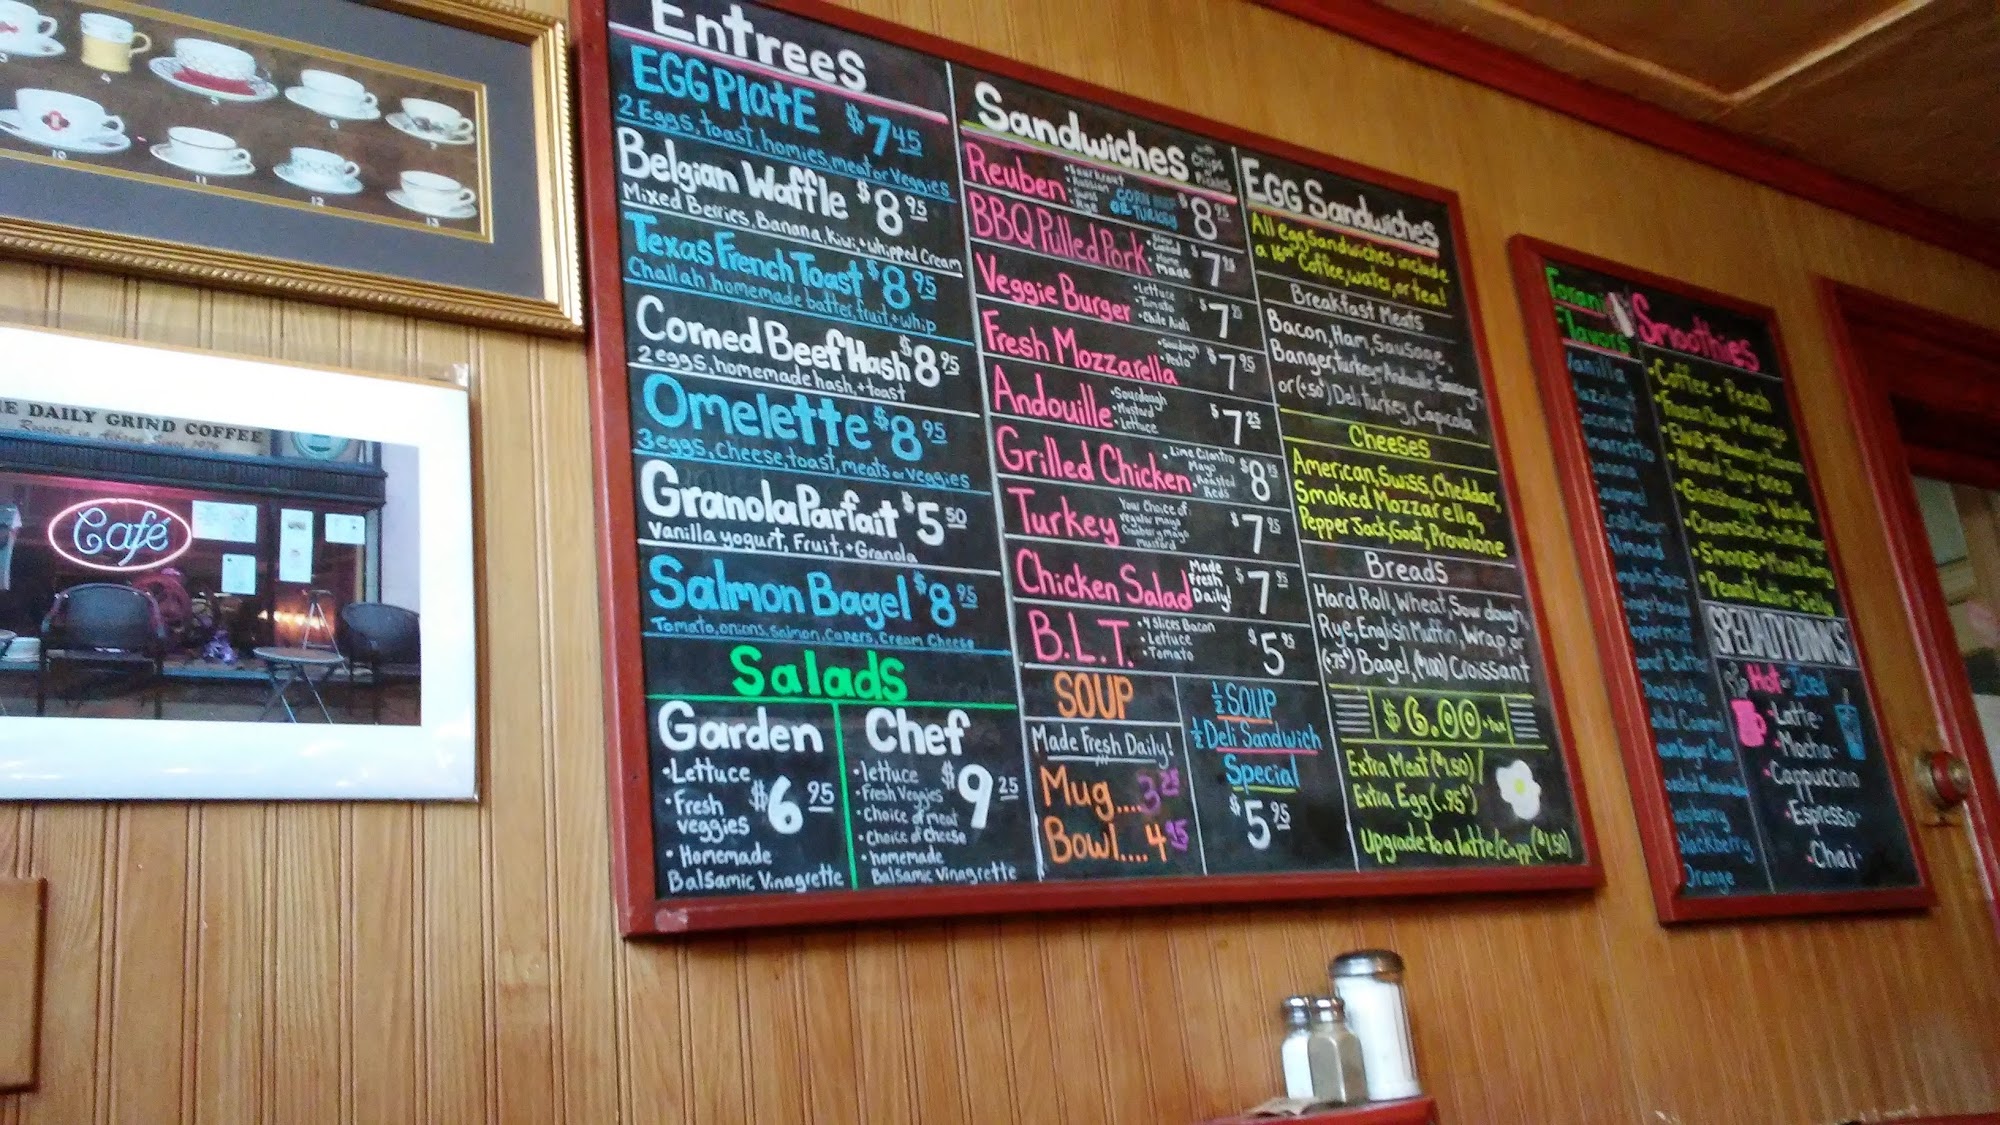 3
4
5
6
7
10
11
12
13
E DAILY GRIND COFFEE
Roasted in Albany Since 1976
Café
Entrees
EGG PlatE $7.45
2 Eggs, toast, homies, meat or Veggies
Belgian Waffle $8.95
Mixed Berries, Banana, Kiwi, + whipped Cream
Texas French Toast $8.95
Challah, homemade batter, fruit, + whip
Corned Beef Hash $8.95
2 eggs, homemade hash, + toast
Omelette $8.95
3 eggs, Cheese, toast, meats or Veggies
Granola Parfait $5.50
Vanilla yogurt, Fruit, + Granola
Salmon Bagel $8.95
Tomato, onions, Salmon, Capers, Cream Cheese
Salads
Garden
• Lettuce
• Fresh veggies
• Homemade
Balsamic Vinagrette
$6.95
Chef
• lettuce
• Fresh Veggies
• Choice of meat
• Choice of cheese
• homemade
Balsamic Vinagrette
$9.25
Sandwiches with Chips
Reuben • Saurkraut • Russian • Swiss • Rye CORN BEEF OR TURKEY $8.95
BBQ Pulled Pork • Slow Cooked • Home Made $7
Veggie Burger • Lettuce • Tomato • Chile Aioli $7
Fresh Mozzarella • Sourdough • Pesto $7.95
Andouille • Sourdough • Mustard • Lettuce $7.25
Grilled Chicken • Lime Cilantro Mayo • Roasted Reds $8
Turkey Your Choice of: regular mayo Cranberry mayo mustard $7.95
Chicken Salad Made Fresh Daily! $7.95
B.L.T. • 4 Slices Bacon • Lettuce • Tomato $5.95
SOUP
Made Fresh Daily!
Mug....3.25
Bowl....4.95
½ SOUP
½ Deli Sandwich
Special
$5.95
EGG Sandwiches
All egg Sandwiches include
a 16oz Coffee, water, or tea!
Breakfast Meats
Bacon, Ham, Sausage,
Banger, Turkey, Andouille Sausage,
or (+.50¢) Deli turkey, Capicola
Cheeses
American, Swiss, Cheddar,
Smoked Mozzarella,
Pepper Jack, Goat, Provolone
Breads
Hard Roll, Wheat, Sour dough,
Rye, English Muffin, Wrap, or
(+.75¢) Bagel, (+1.00) Croissant
$6.00 + tax
Extra Meat ($1.50) /
Extra Egg (.95¢)
Upgrade to a latte/Capp. ($1.50)
Torani
Flavors
Vanilla
Hazelnut
Coconut
Amarretto
Banana
Caramel
Irish Cream
Almond
Pumpkin Spice
Gingerbread
Peppermint
Chocolate
Raspberry
Blackberry
Orange
Smoothies
• Coffee • Peach
• Mango
• Elvis • Strawberry Banana
• Almond Joy • Oreo
• Grasshopper • Vanilla
• Creamsicle
• S'mores • Mixed Berry
• Peanut butter • Jelly
SPECIALTY DRINKS
Hot or Iced
• Latte •
• Mocha •
• Cappuccino
• Espresso •
• Chai •